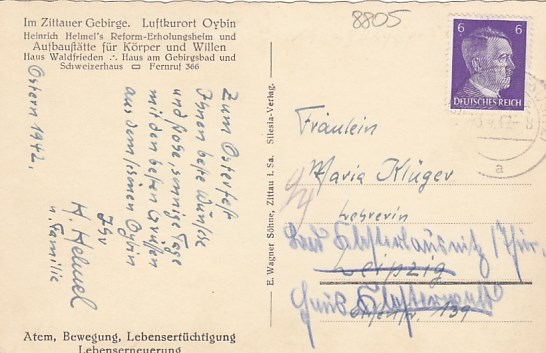 Im Zittauer Gebirge. Luftkurort Oybin
Heinrich Helmel's Reform-Erholungsheim und
Aufbaustätte für Körper und Willen
Haus Waldfrieden ∴ Haus am Gebirgsbad und
Schweizerhaus ▭ Fernruf 366
Ostern 1942.
Zum Osterfest
Ihnen beste Wünsche
und frohe, sonnige Tage
mit den besten Grüßen
aus dem schönen Oybin
Ihr
H. Helmel
u. Familie
Atem, Bewegung, Lebensertüchtigung
Lebenserneuerung
E. Wagner Söhne, Zittau i. Sa. Silesia-Verlag.
8805
6 6
DEUTSCHES REICH
a
Fräulein
Maria Klüger
Lehrerin
Bad Klosterlausnitz/Thür.
Leipzig
Haus
139